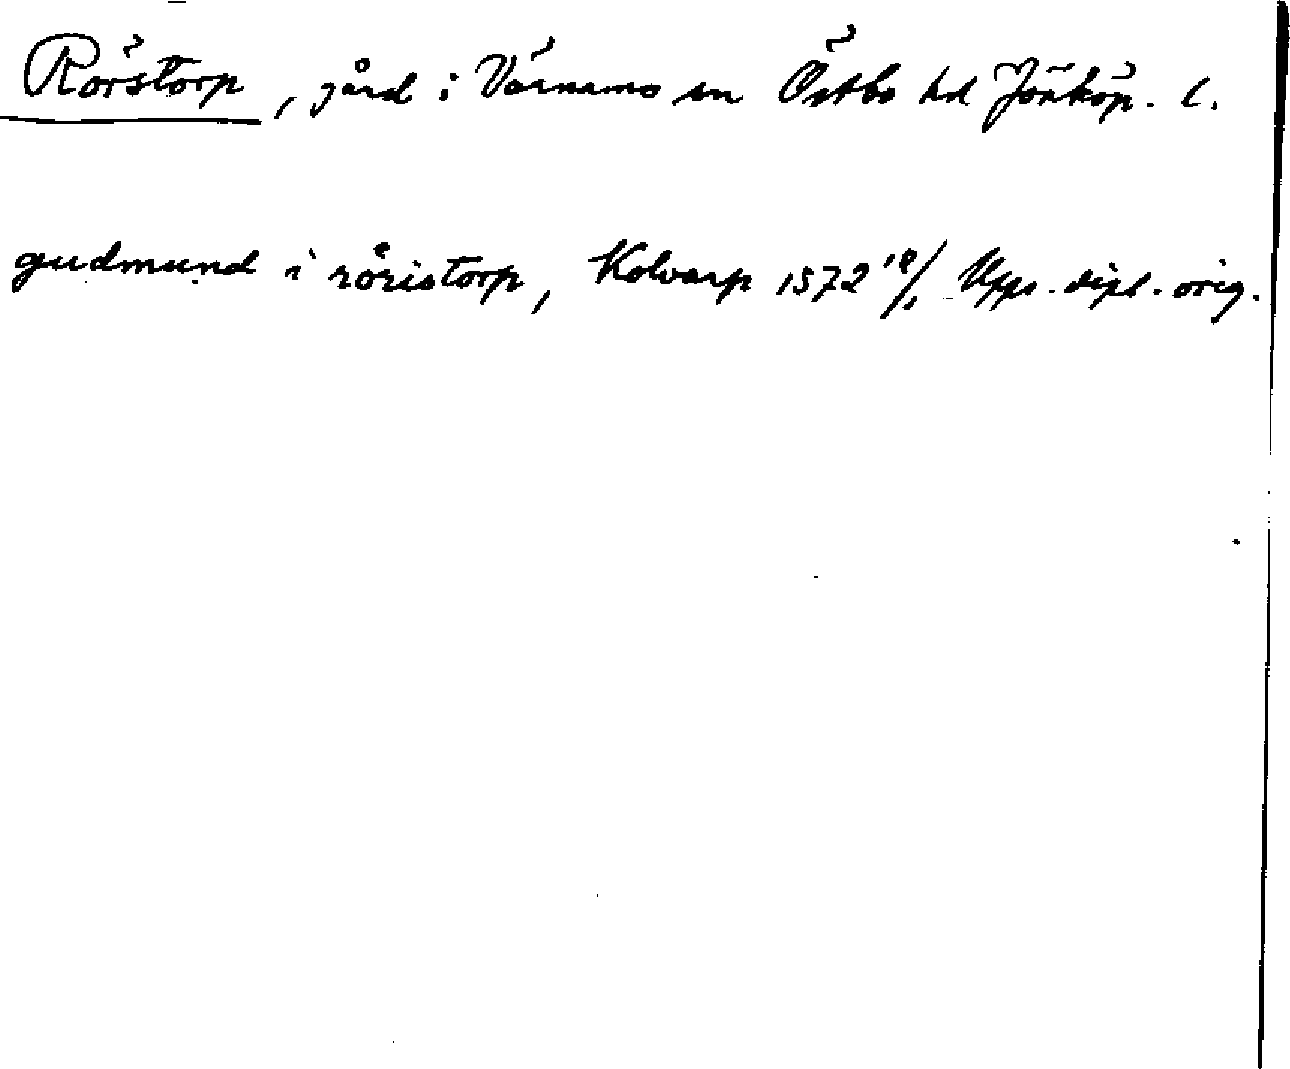 Rörstorp, gård i Värnamo sn Östbo hd Jönköp. l.
gudmund i röristorp, Kolvarp 1572 18/1 Upps. dipl. orig.